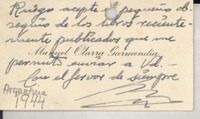 Ruégole acepte el pequeño ob-
sequio de los libros reciente-
mente publicados que me
Manuel Olarra Garmendia
permito enviar a Vd.
Con el fervor de siempre
Argentina
1944